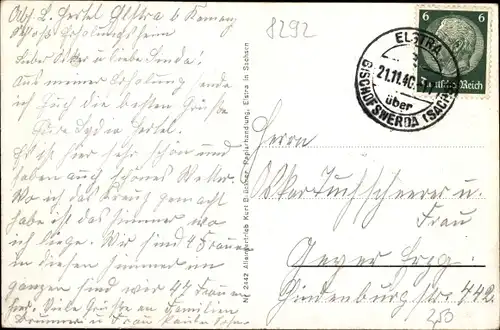 Abs L. Hertel Elstra b Kamenz
Schloß Erholungsheim
Lieber Oskar u. liebe Linda!
Aus meiner Erholung sende
ich Euch die besten Grüße
Eure Lydia Hertel.
Es ist hier sehr schön und
haben auch schönes Wetter.
Wo ich das Kreuz gemacht
habe ist das Zimmer wo
ich liege. Wir sind 4 Frauen
in diesem Zimmer im
ganzen sind wir 47 Frauen
hier. Viele Grüße an Familien
u Frau
Nr. 2442 Alleinvertrieb Kurt Büchner, Papierhandlung, Elstra in Sachsen
8292
ELSTRA
21.11.40
über
BISCHOFSWERDA (SACHS)
6 6
Deutsches Reich
Herrn
Oskar Tuchscheerer u.
Frau
Geyer Erzg.
Hindenburgstr. 442
250